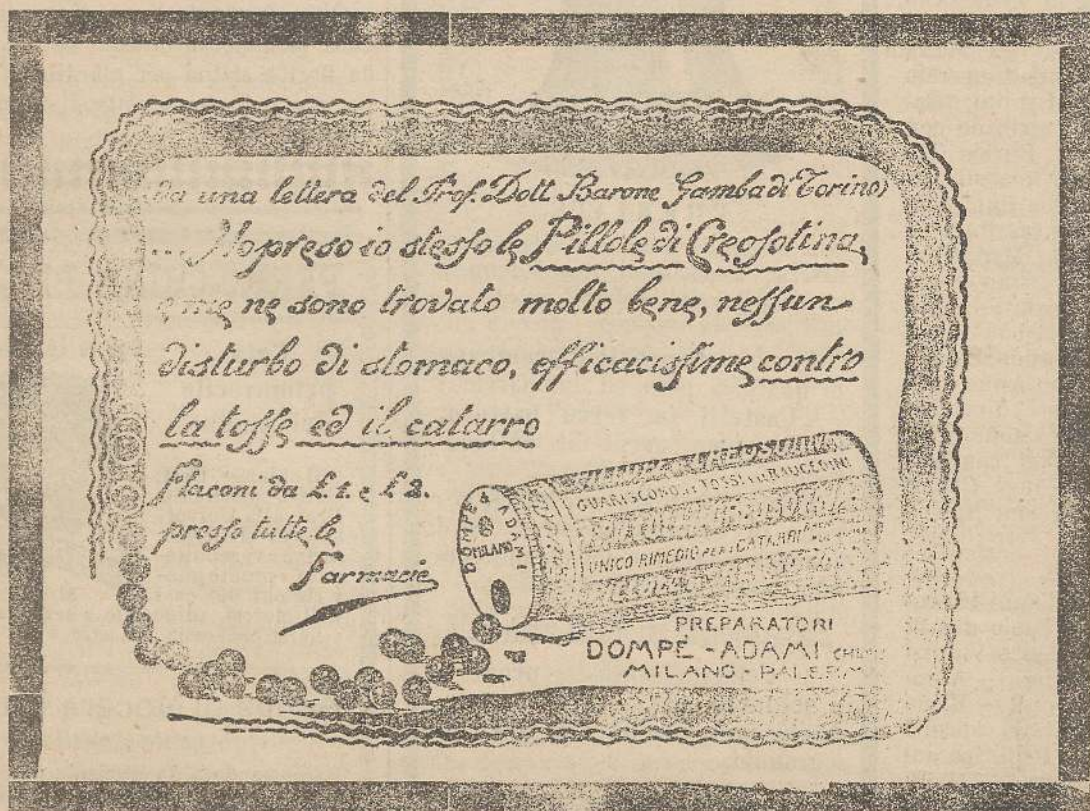 (da una lettera del Prof. Dott Barone Gamba di Torino)
... Ho preso io stesso le Pillole di Creosotina,
e me ne sono trovato molto bene, nessun
disturbo di stomaco, efficacissime contro
la tosse ed il catarro
Flaconi da £. 1. e £ 2.
presso tutte le
Farmacie
DOMPÉ & ADAMI
MILANO
GUARISCONO LE TOSSI E LE RAUCEDINI
UNICO RIMEDIO PER I CATARRI
PREPARATORI
DOMPÉ - ADAMI
MILANO - PALERM